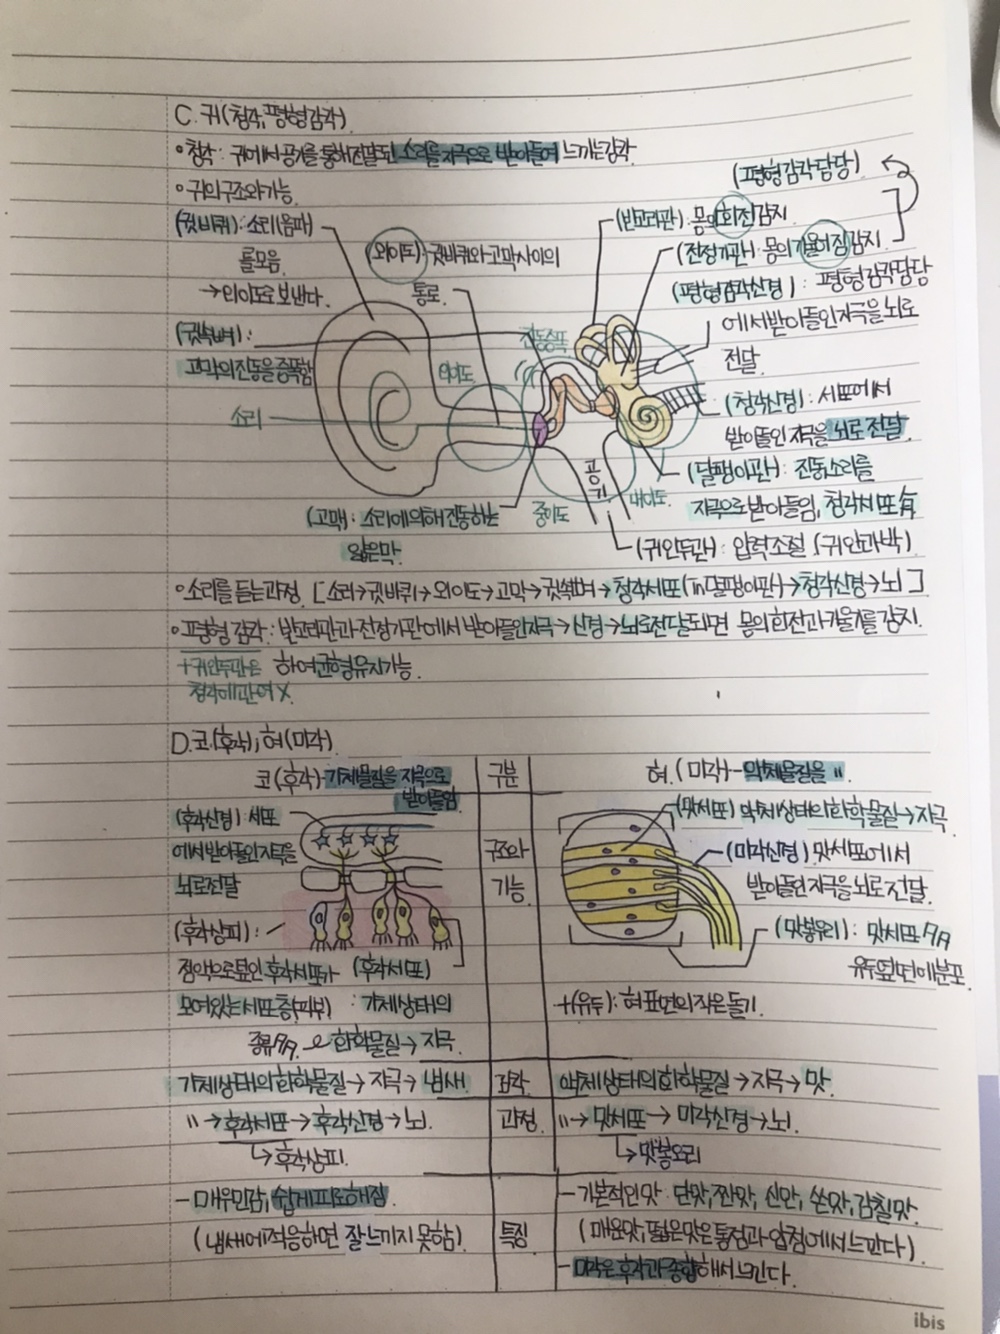 C. 귀(청각, 평형감각)
• 청각: 귀에서 공기를 통해 전달된 소리를 자극으로 받아들여 느끼는 감각
• 귀의 구조와 기능
(평형감각 담당)
(귓바퀴): 소리(음파)
를 모음.
→ 외이도로 보낸다.
(외이도): 귓바퀴와 고막 사이의
통로.
(반고리관): 몸의 회전 감지
(전정기관): 몸의 기울어짐 감지
(평형감각신경): 평형감각 담당
에서 받아들인 자극을 뇌로
전달.
(귓속뼈):
고막의 진동을 증폭함
진동증폭
외이도
소리
(청각신경): 세포에서
받아들인 자극을 뇌로 전달.
(달팽이관): 진동소리를
자극으로 받아들임, 청각세포 有
공기
중이도
내이도.
(고막: 소리에 의해 진동하는
얇은 막.
(귀인두관): 압력조절 (귀 안과 밖)
• 소리를 듣는 과정. [소리→귓바퀴→외이도→고막→귓속뼈→청각세포(in달팽이관)→청각신경→뇌]
• 평형 감각: 반고리관과 전정기관에서 받아들인 자극→신경→뇌로 전달되면 몸의 회전과 기울기를 감지.
하여 균형유지 가능.
+귀인두관은
청각에 관여 X
D. 코(후각), 혀(미각)
코(후각)-기체물질을 자극으로
받아들임
구분
혀.(미각)-액체물질을 〃
(후각신경): 세포
에서 받아들인 자극을
뇌로 전달
(후각상피):
점액으로 덮인 후각세포가
모여있는 세포층(피부)
(후각세포)
: 기체상태의
화학물질→자극.
구조와
기능.
(맛세포) 액체상태의 화학물질→자극.
(미각신경) 맛세포에서
받아들인 자극을 뇌로 전달.
(맛봉우리): 맛세포
유두 옆면에 분포
+(유두): 혀 표면의 작은 돌기.
기체상태의 화학물질→자극→냄새.
〃→후각세포→후각신경→뇌.
↳후각상피.
감각.
과정.
액체상태의 화학물질→자극→맛.
〃→맛세포→미각신경→뇌.
↳맛봉오리
- 매우 민감, 쉽게 피로해짐
(냄새에 적응하면 잘 느끼지 못함)
특징
- 기본적인 맛: 단맛, 짠맛, 신맛, 쓴맛, 감칠맛.
(매운맛, 떫은맛은 통점과 압점에서 느낀다).
- 미각은 후각과 종합해서 느낀다.
ibis